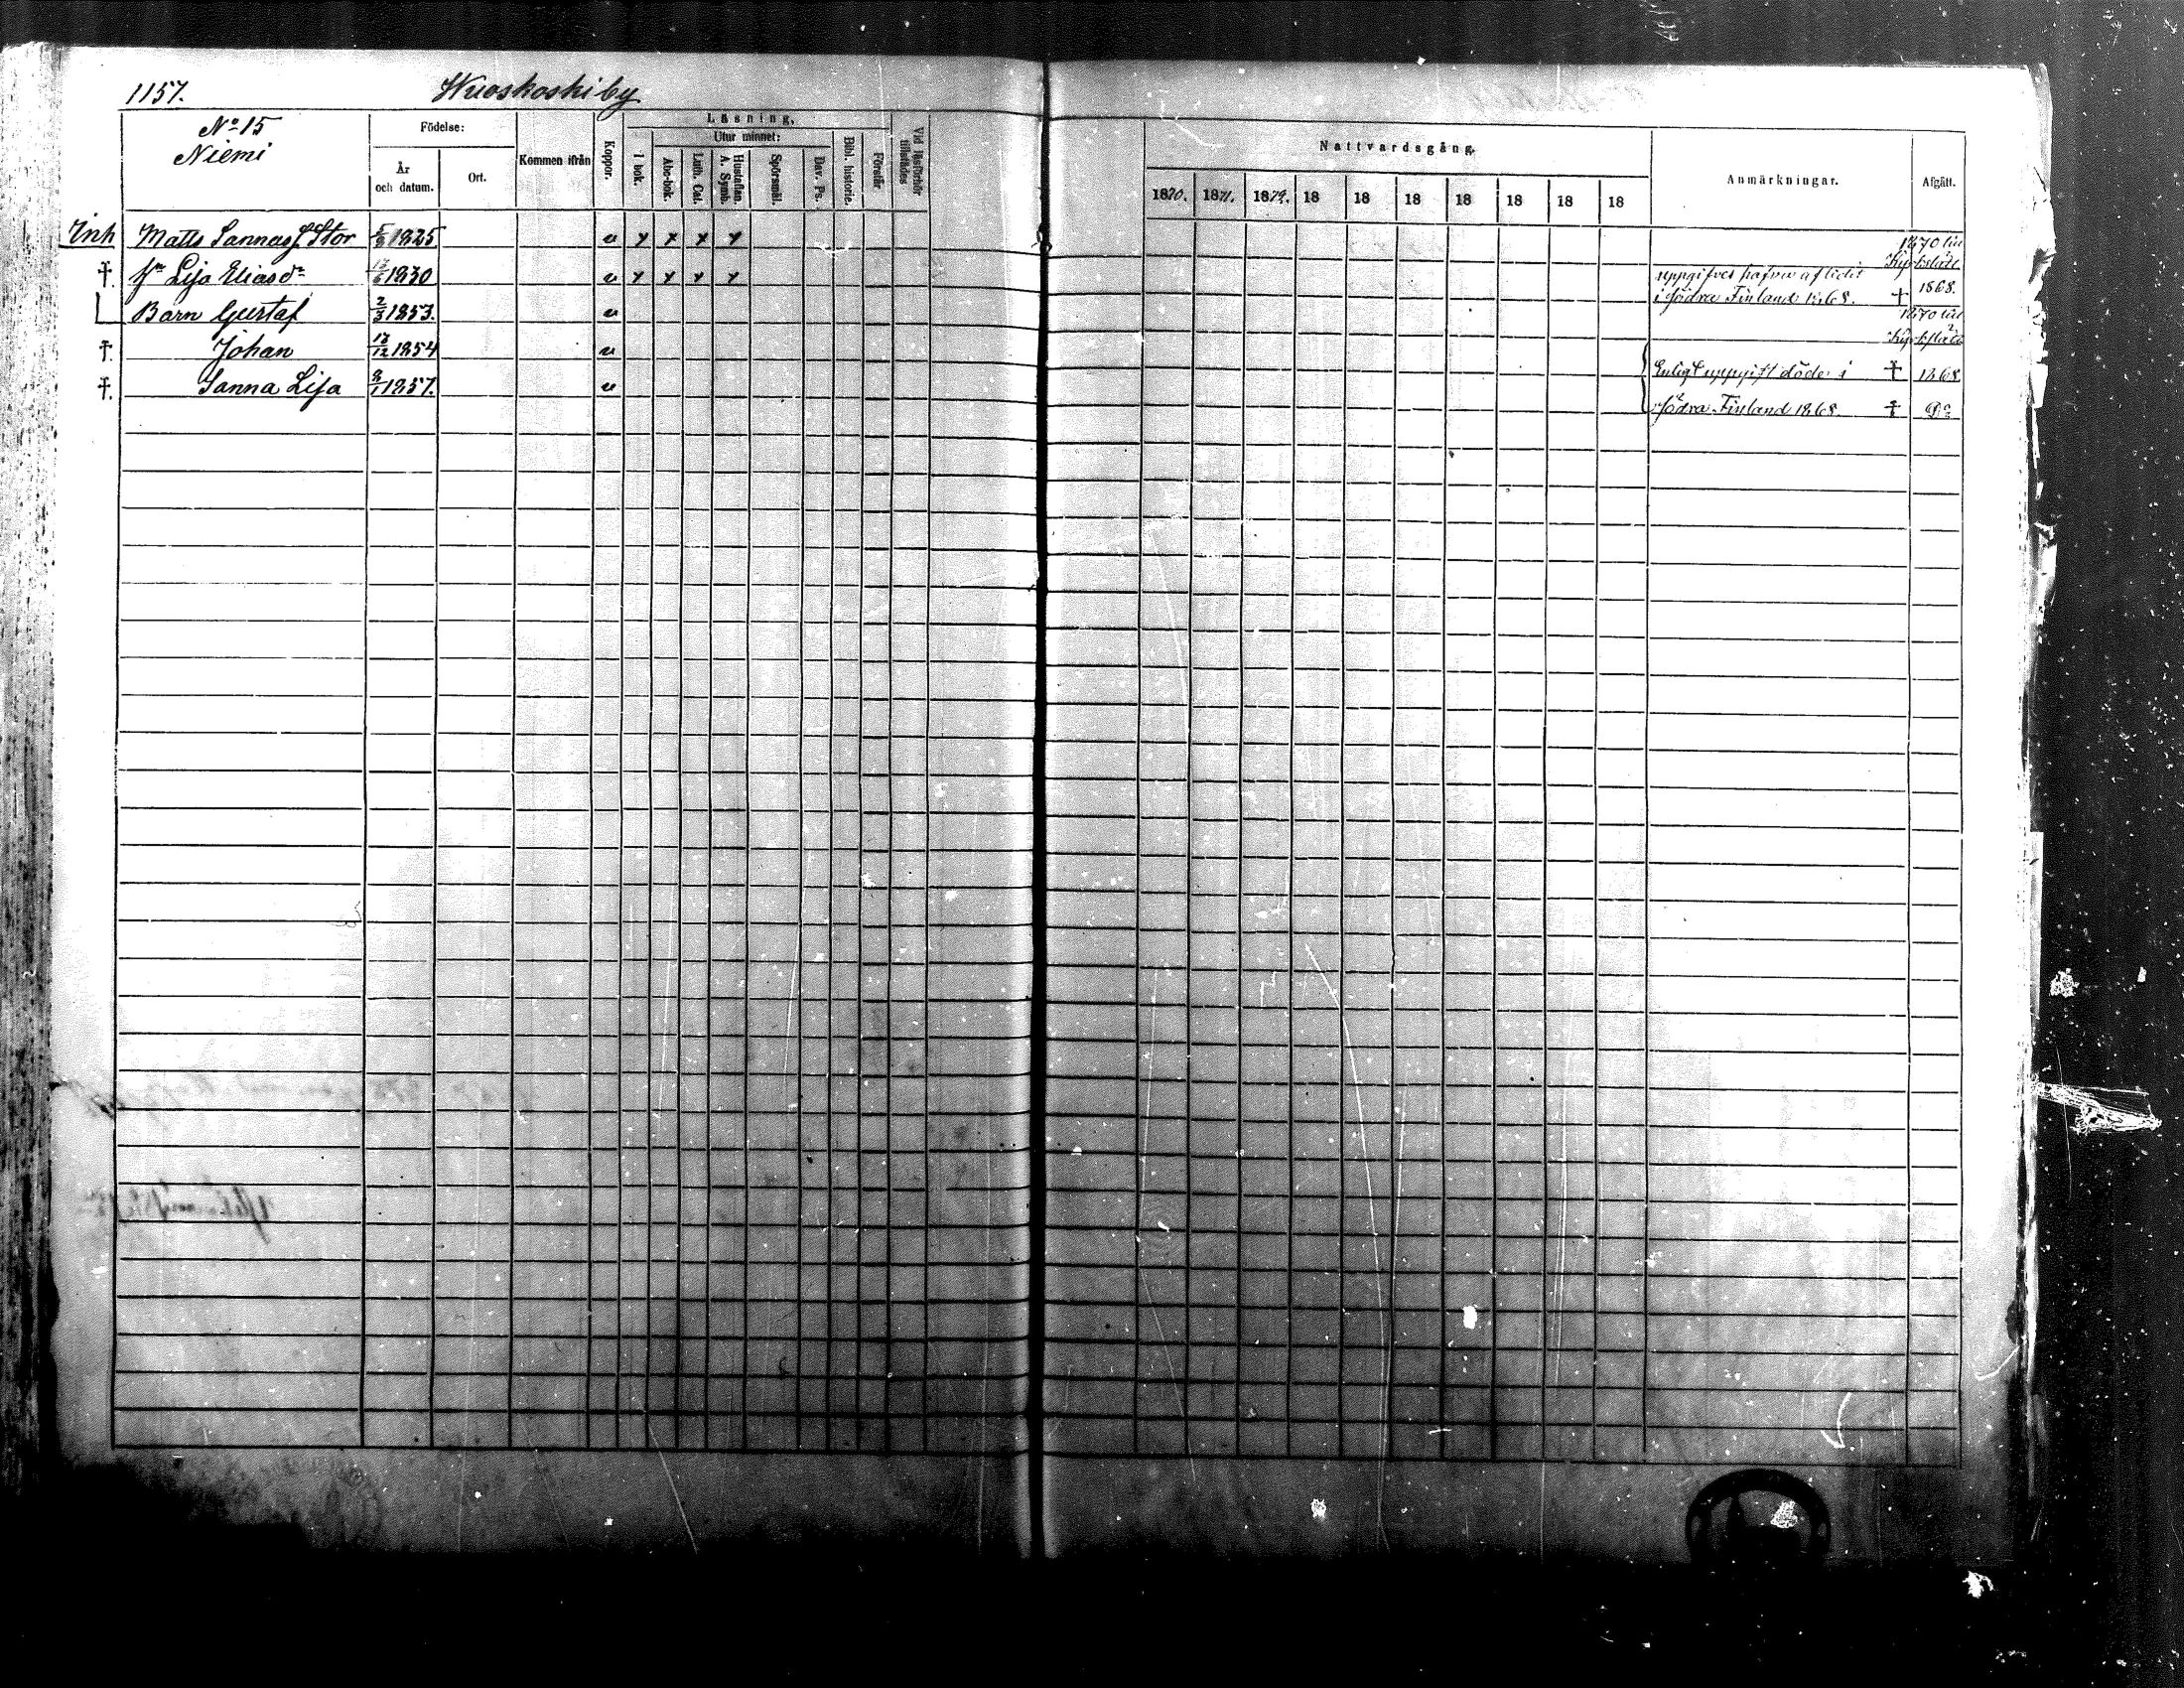 1157. Wuoskoski by
No 15
Niemi
Födelse:
År och datum.
Ort.
Kommen ifrån
Koppor.
Läsning.
I bok.
Utur minnet:
Abc-bok.
Luth. Cat.
Hustaflan. A. Symb.
Spörsmål.
Dav. Ps.
Bibl. historie.
Förstår
Vid läsförhör tillstädes
Nattvardsgång.
1870. 1871. 1879. 18 18 18 18 18 18 18
Anmärkningar.
Afgått.
Inh Matts Sannas Stor 1825 v x x x x 1870 till Kyrkslätt
† Hu Lisa Eliasdr 13/6 1830 v x x x x uppgifves hafva aflidit i södra Finland 1868. † 1868.
Barn Gustaf 2/3 1853. v 1870 till Kyrkslätt
† Johan 13/12 1854 v Enligt uppgift döde i † 1868
†. Sanna Lisa 8/1 1857. v södra Finland 1868. † Do